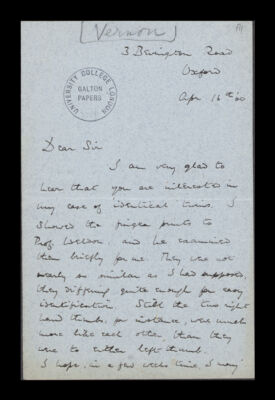 [Vernon]
3 Bevington Road
Oxford
Apr 16th '00
UNIVERSITY COLLEGE LONDON
GALTON PAPERS
Dear Sir
I am very glad to
hear that you are interested in
my case of identical twins. I
showed the finger prints to
Prof. Weldon, and he examined
them briefly for me. They are not
nearly so similar as I had supposed,
they differing quite enough for easy
identification. Still the two right
hand thumbs, for instance, were much
more like each other than they
were to either left thumb.
I hope, in a few weeks time, I may